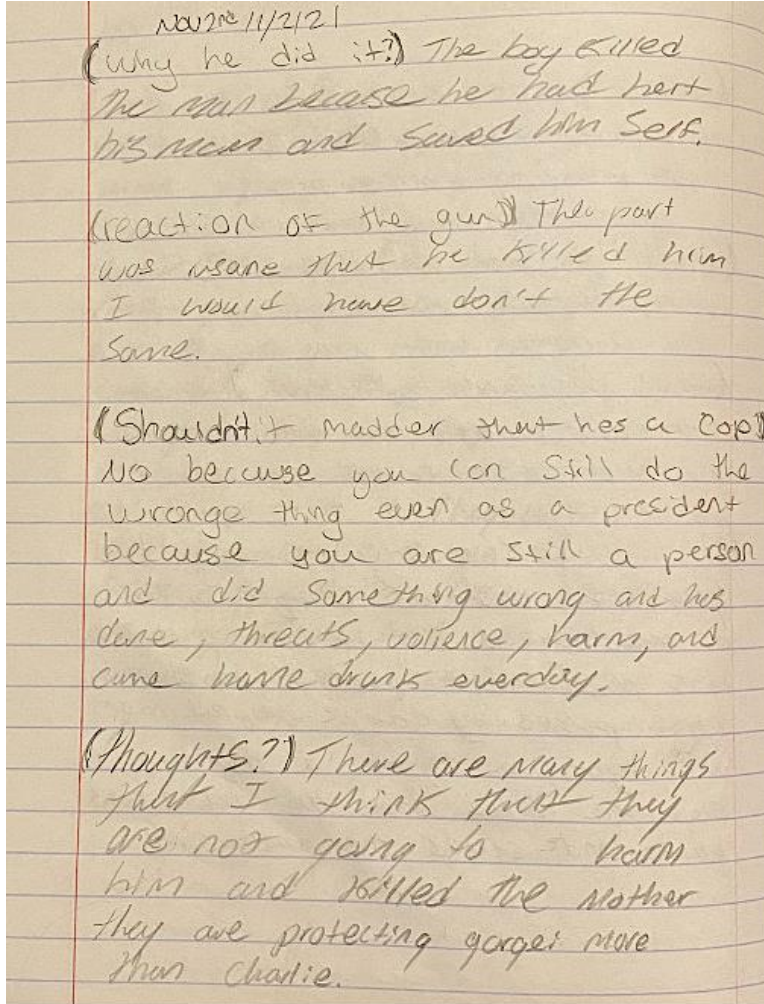 Nov 2nd 11/2/21
(why he did it?) The boy killed
the man becase he had hert
his mom and saved him self.
(reaction of the gun) This part
was nsane that he killed him
I would have don't the
same.
(Shouldn't it madder that hes a cop)
No because you can still do the
wronge thing even as a president
because you are still a person
and did something wrong and has
done, threats, volience, harm, and
came home drunk everday.
(Thoughts?) There are many things
that I think that they
are not going to harm
him and killed the mother
they are protecting gorgei more
than Charlie.